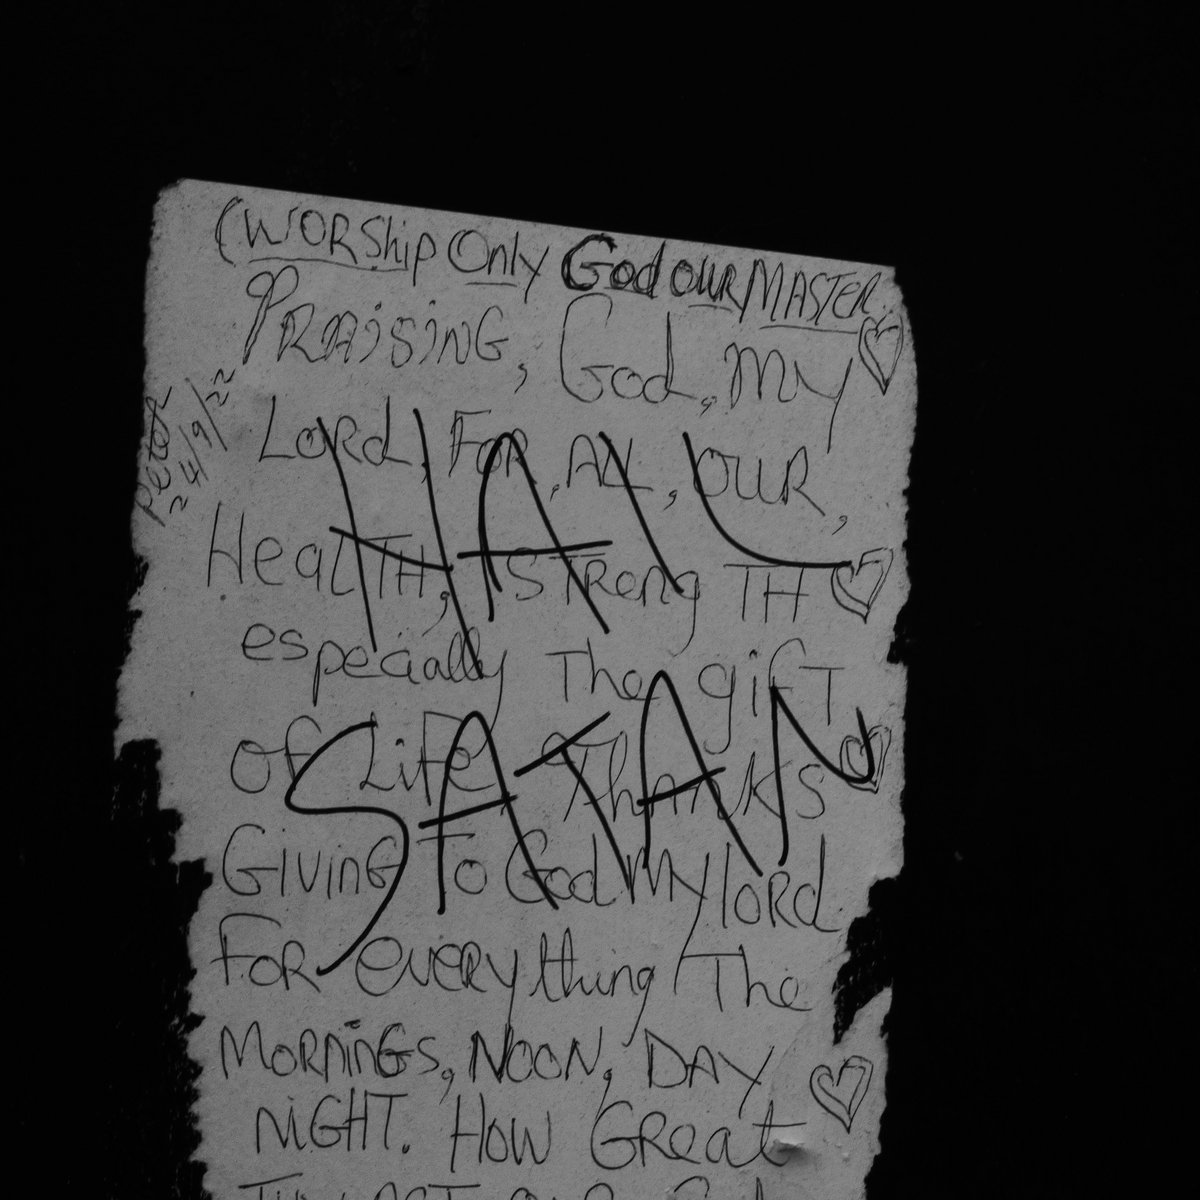 (WORShip Only God OUR MASTER.
PRAISING, God, My
Peter
24/9/22
LORd, FOR, All, OUR,
HealTH, STRengTH
especially The giFT
OF LiFe, ThanKS
GIVinG To God My lord
FOR eveRything The
MORNiNGS, NOON, DAY
NiGHT. HOW GReat
HAIL
SATAN